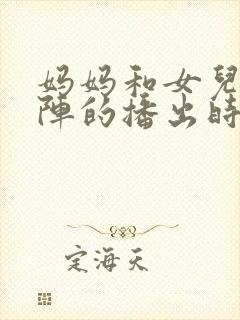 妈妈和女兒
陣的播出時
定海天